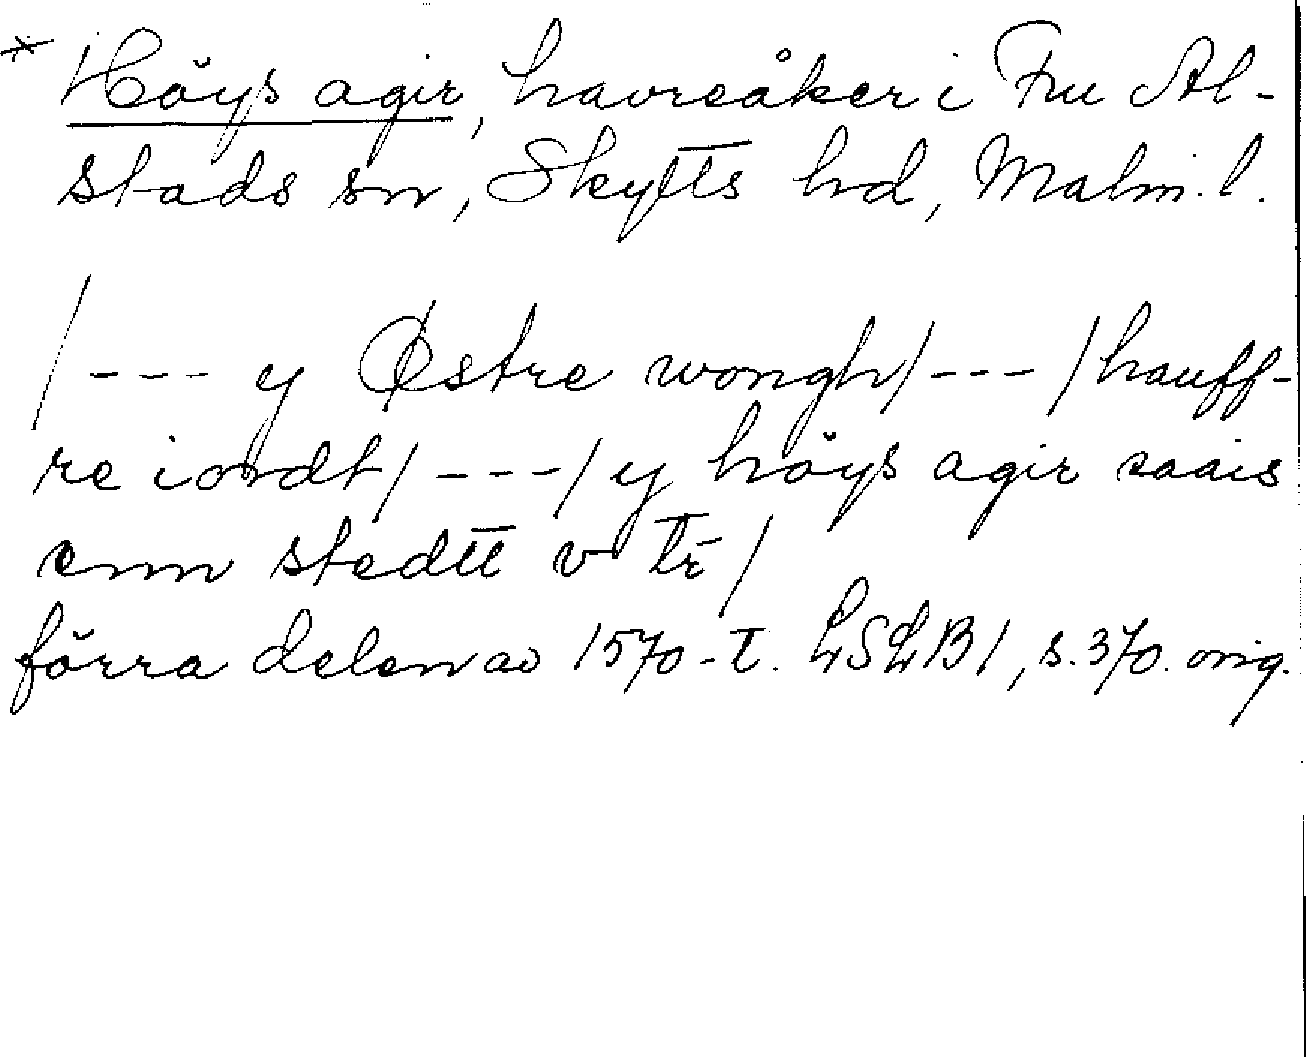 * Höys agir, havreåker i Fru Al-
stads sn, Skytts hd, Malm. l.
/--- y Østre wongh/---/hauff-
re iordt/---/y höys agir saais
enn stedtt v
förra delen av 1570-t. LSLB1, s. 370. orig.